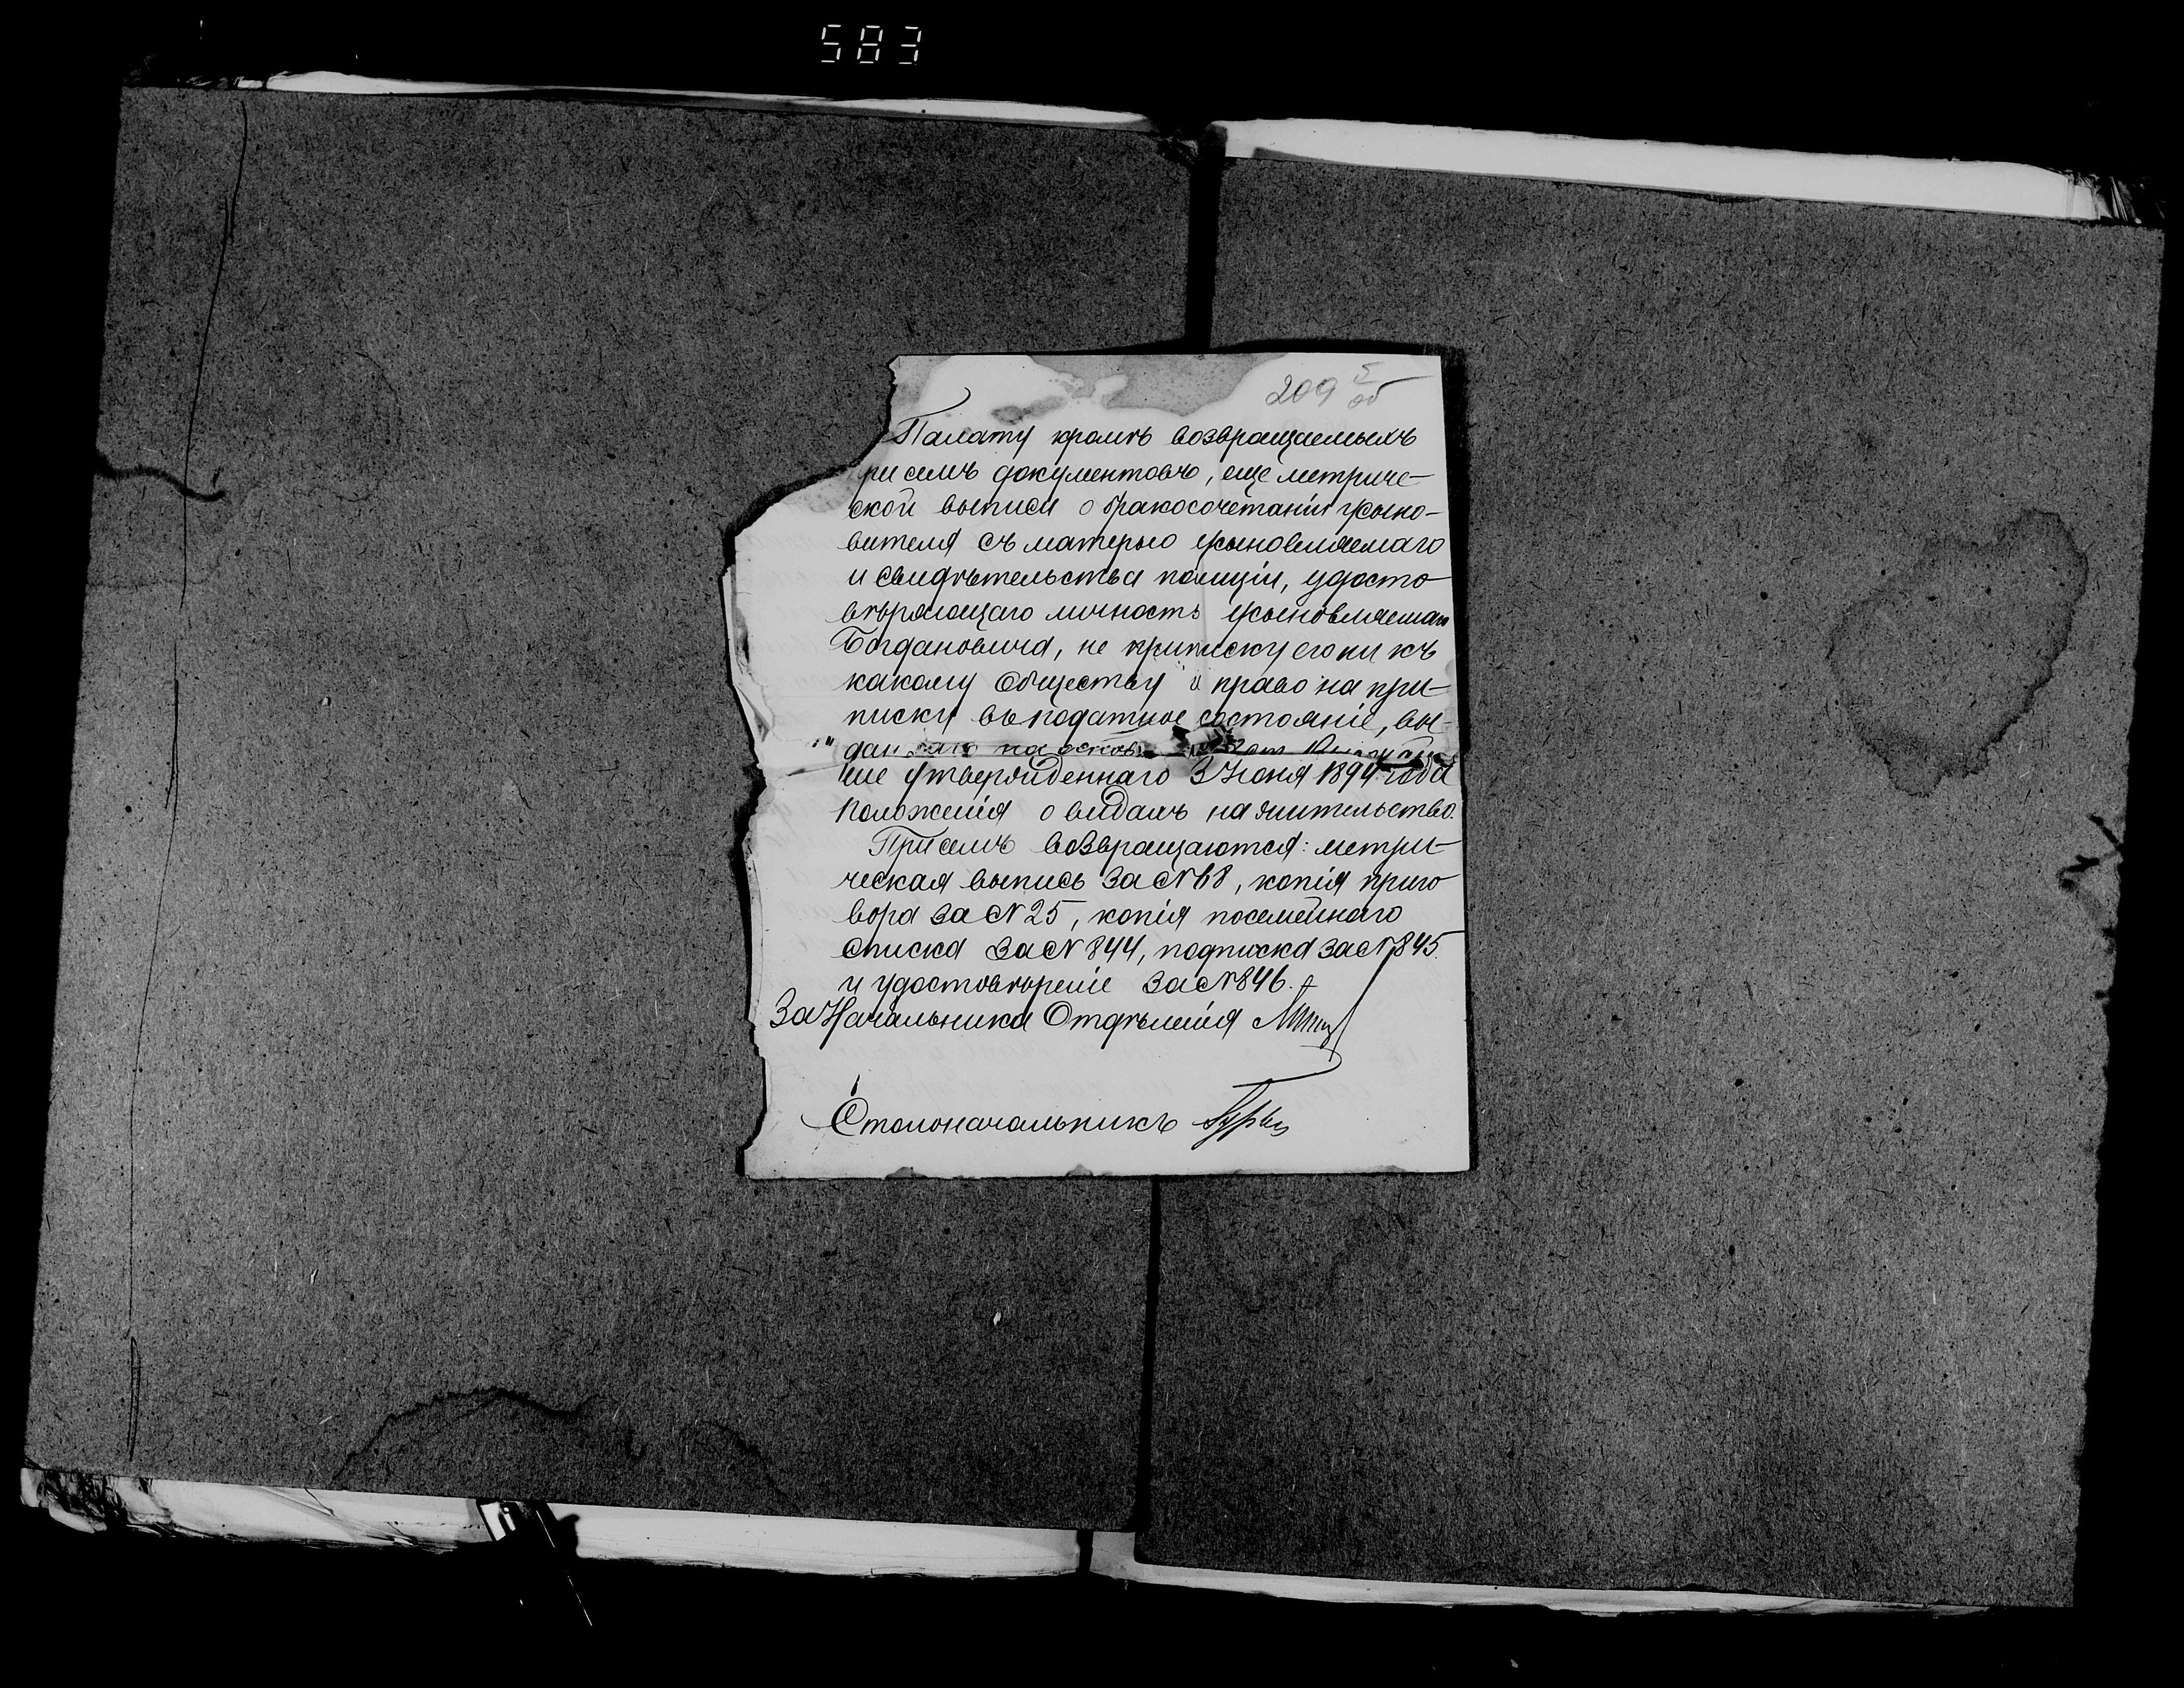 583
209 5 об
Палату кромѣ возвращаемыхъ
при семъ документовъ, еще метриче-
ской выписи о бракосочетаніи усыно-
вителя съ матерью усыновляемаго
и свидѣтельства полиціи, удосто-
вѣряющаго личность усыновляемаго
Богдановича, не приписку его ни къ
какому обществу и право на при-
писку въ податное состояніе, вы-
дан на основ
ше утвержденнаго 3 Іюня 1894 года
положенія о видахъ на жительство.
При семъ возвращаются: метри-
ческая выпись за № 68, копія приго
вора за № 25, копія посемейнаго
списка за № 844, подписка за № 845
и удостовѣреніе за № 846.
За Начальника Отдѣленія
Столоначальникъ